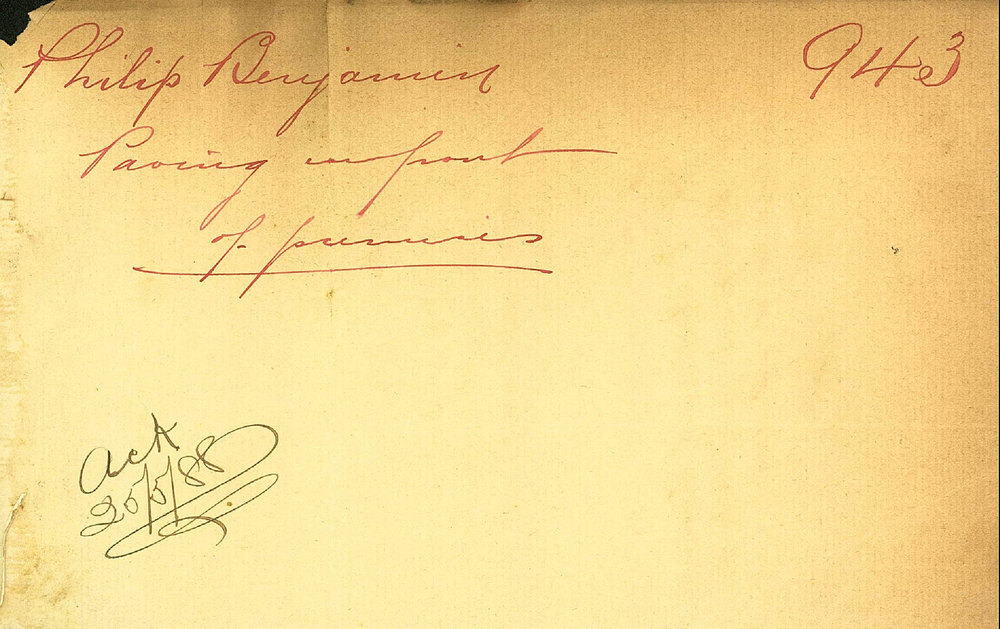 Philip Benjamin 943
Paving in front
of premises
Ack
25/5/88